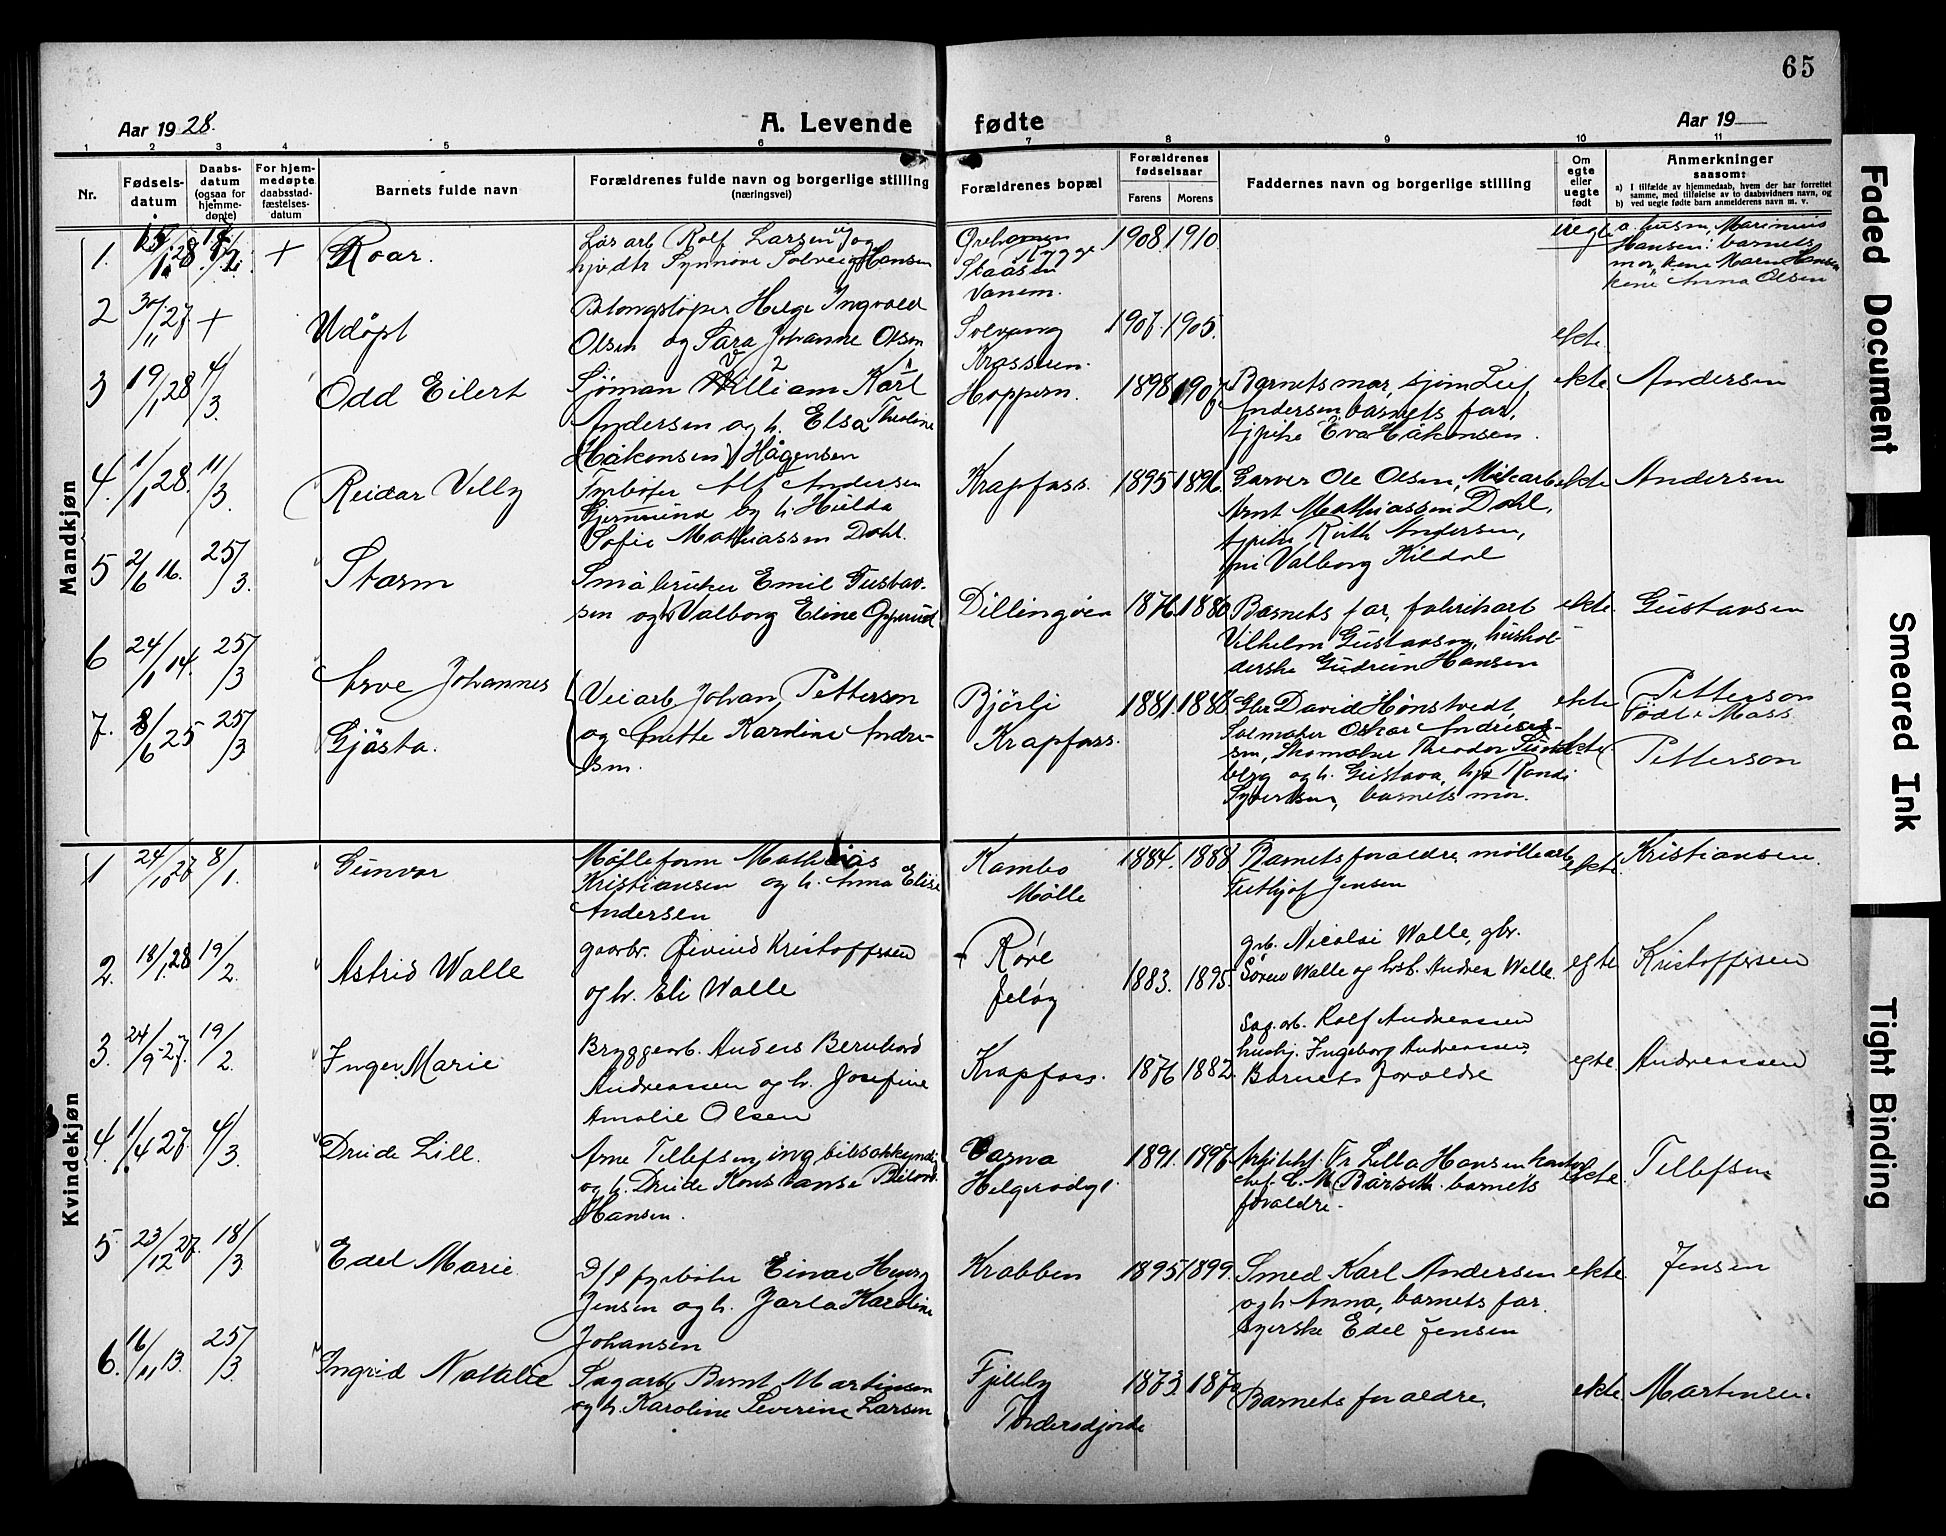 65
Aar 1928.
A. Levende fødte
Aar 19
1 2 3 4 5 6 7 8 9 10 11
Nr.
Fødsels-
datum
Daabs-
datum
(ogsaa for
hjemme-
døpte)
For hjem-
medøpte
daabsstad-
fæstelses-
datum
Barnets fulde navn
Forældrenes fulde navn og borgerlige stilling
(næringsvei)
Forældrenes bopæl
Forældrenes
fødselsaar
Farens Morens
Faddernes navn og borgerlige stilling
Om
egte
eller
uegte
født
Anmerkninger
saasom:
a) I tilfælde av hjemmedaab, hvem der har forrettet
samme, med tilføielse av to daabsvidners navn, og
b) ved uegte fødte barn anmelderens navn m. v.
Mandkjøn
1. + Roar. Løsarb Rolf Larsen og 1908. 1910. uegte a. husm. Marinius
Synnøve Solveig Hansen Rygge Hansen: barnets
Staasen mor,
Vanem. Anna Olsen
2 30/11 27. + Udøpt Helge Ingvald
Olsen og Sara Johanne Olsen Solvang 1907. 1905. ekte.
3 19/1 28 4/3. Odd Eilert Sjøman William Karl Hoppern. 1898 1907 Barnets mor, sjøm Leif ekte Andersen
Andersen og h. Elsa Theoline Andersen barnets far,
Håkonsen) Hågensen tjpike Eva Håkonsen.
4. 1/1 28. 11/3. Reidar Villy Fyrbøter Alf Andersen Krapfoss. 1895 1896. Garver Ole Olsen, ekte Andersen
Gjermund og h. Hulda Arnt Mathiassen Dahl,
Sofie Mathiassen Dahl. tjpike Ruth Andersen,
Valborg Kildal
5 2/6 16. 25/3. Starm Småbruker Emil Gustav-
sen og Valborg Eline Opperud Dillingøen 1876. 1880 Barnets far, fabrikarb ekte Gustavsen
Vilhelm Gustavsen, hushol-
derske Gudrun Hansen
6 24/1 14. 25/3 Arve Johannes Veiarb Johan Petterson Bjørli 1881. 1888 David Hønstvedt, ekte Petterson
Født i Moss
7. 8/6 25 25/3 Gjøsta. og Anette Karoline Andre- Krapfoss. Oskar Andreas-
sen. sen, Skomaker Theodor ekte Petterson
berg og h. Gustava, Randi
Syversen, barnets mor.
Kvindekjøn
1 24/10 27 8/1. Gunvor Mølleform Mathias Kambo 1884. 1888 Barnets foraldre møllearb ekte Kristiansen.
Kristiansen og h. Anna Elise Mølle Frithjof Jensen
Andersen
2. 18/1 28 19/2. Astrid Walle gaarbr. Øivind Kristoffersen Røre 1883. 1895. grb. Nicolai Walle, gbr. egte Kristoffersen
og h. Eli Walle Jeløy Søren Walle og hsb. Andrea Walle.
3. 24/9 27. 19/2. Inger Marie Bryggearb. Anders Bernhard Krapfoss. 1876 1882. Sag.arb. Rolf Andreassen egte Andreassen
Andreassen og h. Josefine hushj. Ingeborg Andreassen,
Amalie Olsen Barnets foraldre
4. 1/4 27. 4/3. Drude Lill. Arne Tellefsen, ing bilsakkyndig Varna 1891. 1897. Arkitekt Fr Lilla Hansen ekte Tellefsen
og h. Drude Konstanse Helgerødgt. C. M. barnets
Hansen. foraldre.
5 23/12 27. 18/3. Edel Marie. D/S fyrbøter Einar Henry Krabben 1895 1899. Smed Karl Andersen ekte Jensen
Jensen og h. Jarla Karoline og h Anna, barnets far.
Johansen syerske Edel Jensen
6. 16/11 13. 25/3. Ingrid Natalie Sagarb Bernt Martinsen Fjeldly 1873. Barnets foraldre, ekte Martensen.
og h. Karoline Severine Larsen
Faded Document
Smeared Ink
Tight Binding